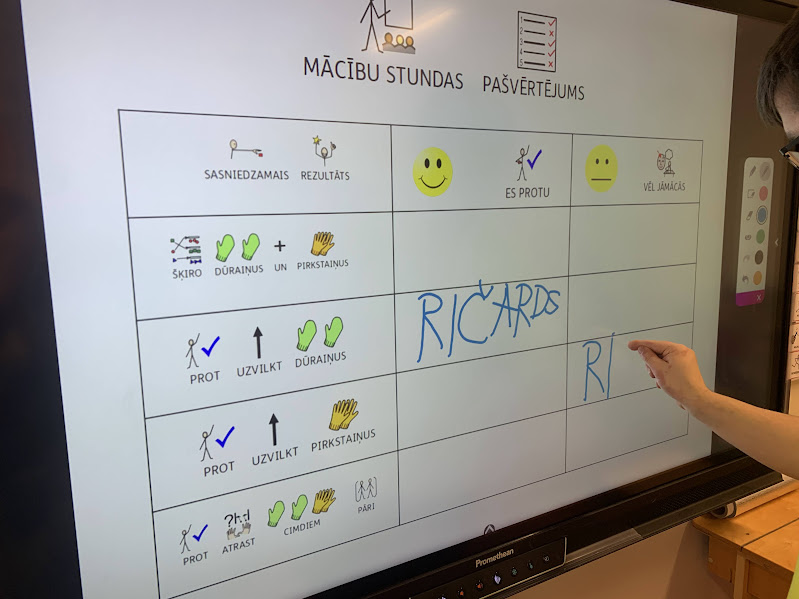 MĀCĪBU STUNDAS PAŠVĒRTĒJUMS
SASNIEDZAMAIS REZULTĀTS
ES PROTU
VĒL JĀMĀCĀS
ŠĶIRO DŪRAIŅUS + UN PIRKSTAIŅUS
RIČARDS
PROT UZVILKT DŪRAIŅUS
RI
PROT UZVILKT PIRKSTAIŅUS
PROT ATRAST CIMDIEM PĀRI
Promethean